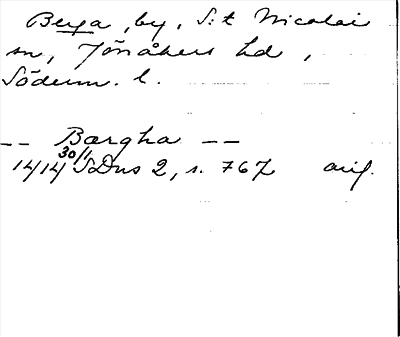 Berga, by, S:t Nicolai
sn, Jönåkers hd,
Söderm. l.
-- Bærgha --
1414 30/1 SDns 2, s. 767 orig.